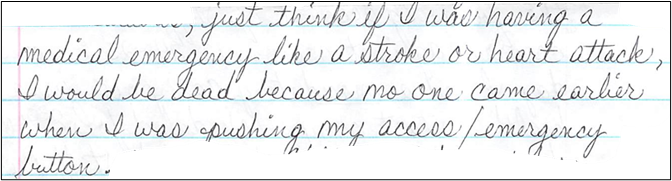 , just think if I was having a
medical emergency like a stroke or heart attack,
I would be dead because no one came earlier
when I was pushing my access/emergency
button.